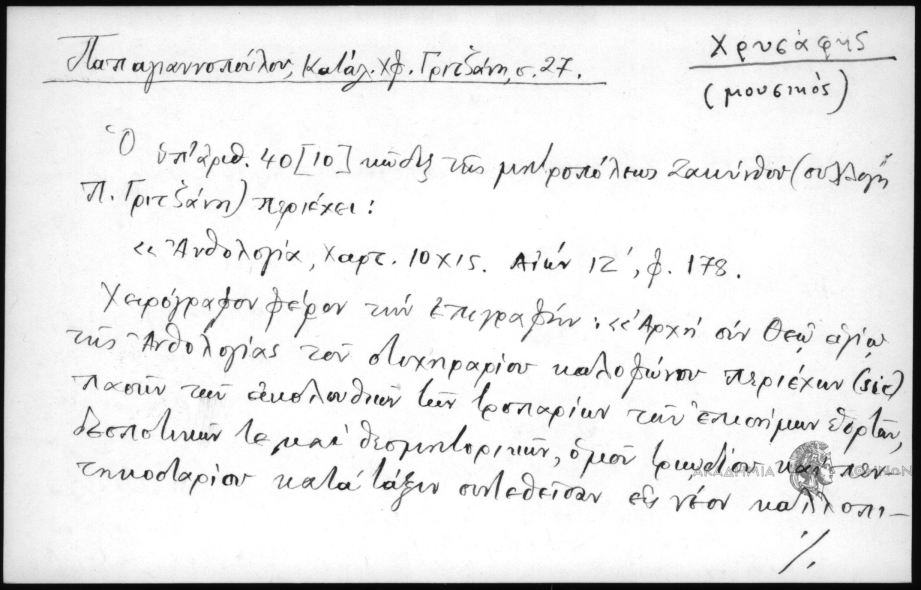 Παπαγιαννοπούλου, Κατάλ. χφ. Γριτζάνη, σ. 27.
Χρυσάφης
(μουσικός)
Ὁ ὑπ' ἀριθ. 40 [10] κώδιξ τῆς μητροπόλεως Ζακύνθου (συλλογὴ
Π. Γριτζάνη) περιέχει:
«Ἀνθολογία, χαρτ. 10×15. Αἰών ΙΖ', φ. 178.
Χειρόγραφον φέρον τὴν ἐπιγραφήν: «Ἀρχὴ σὺν Θεῷ ἁγίῳ
τῆς Ἀνθολογίας τοῦ στιχηραρίου καλοφώνου περιέχων (sic)
πασῶν τῶν ἀκολουθιῶν τῶν τροπαρίων τῶν ἐπισήμων ἑορτῶν,
δεσποτικῶν τε καὶ θεομητορικῶν, ὁμοῦ τριωδίου καὶ πεν-
τηκοσταρίου κατὰ τάξιν συντεθεῖσαν εἰς νέον καλλωπι-
./.
ΑΚΑΔΗΜΙΑ ΑΘΗΝΩΝ